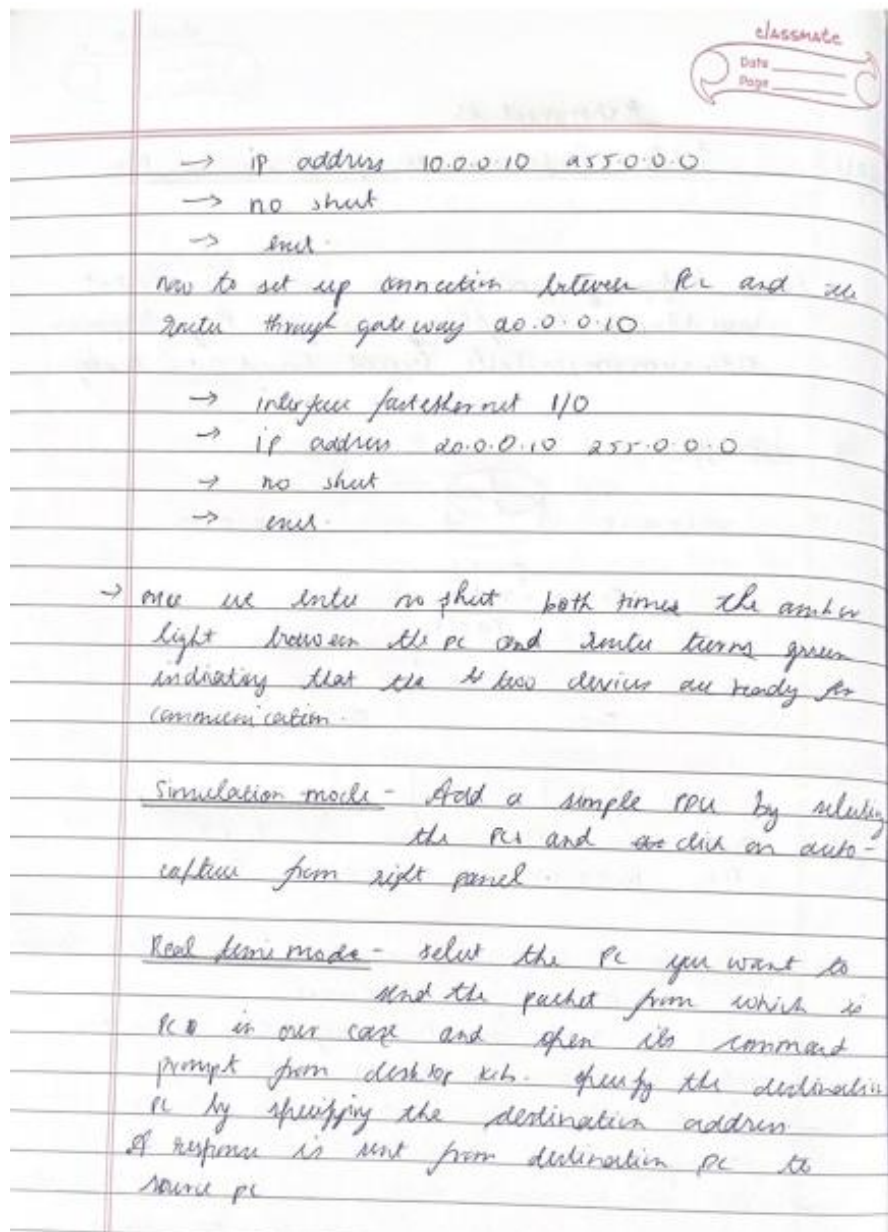 classmate
Date
Page
→ ip address 10.0.0.10 255.0.0.0
→ no shut
→ exit.
now to set up connection between PC and
router through gateway 20.0.0.10
→ interface fastethernet 1/0
→ ip address 20.0.0.10 255.0.0.0
→ no shut
→ exit.
→ once we enter no shut both times the amber
light between the pc and router turns green
indicating that the two devices are ready for
communication.
Simulation mode - Add a simple PDU by selecting
the PCs and click on auto-
capture from right panel
Real time mode - select the PC you want to
send the packet from which is
PC in our case and open its command
prompt from desktop specify the destination
PC by specifying the destination address
A response is sent from destination PC to
source pc